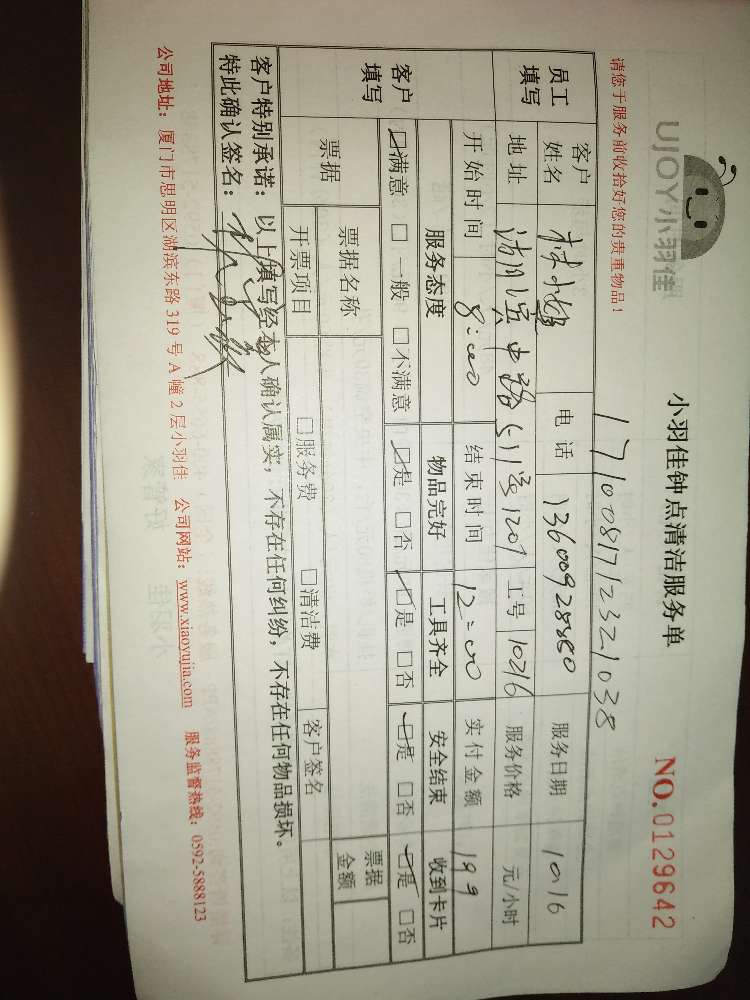 UJOY小羽佳
小羽佳钟点清洁服务单
NO.0129642
请您于服务前收拾好您的贵重物品！
1710081712321038
员工填写 客户姓名 林小姐 电话 13600928880 服务日期 10.16
地址 湖滨中路 号1207 工号 10216 服务价格 元/小时
开始时间 8:00 结束时间 12:00 实付金额 199
客户填写 服务态度 物品完好 工具齐全 安全结束 收到卡片
☑满意 □一般 □不满意 ☑是 □否 ☑是 □否 ☑是 □否 ☑是 □否
票据 票据名称 票据金额
开票项目 □服务费 □清洁费 客户签名
客户特别承诺：以上填写经本人确认属实，不存在任何纠纷，不存在任何物品损坏。
特此确认签名：
公司地址：厦门市思明区湖滨东路 319 号 A 幢 2 层小羽佳 公司网站：www.xiaoyujia.com 服务监督热线：0592-5888123